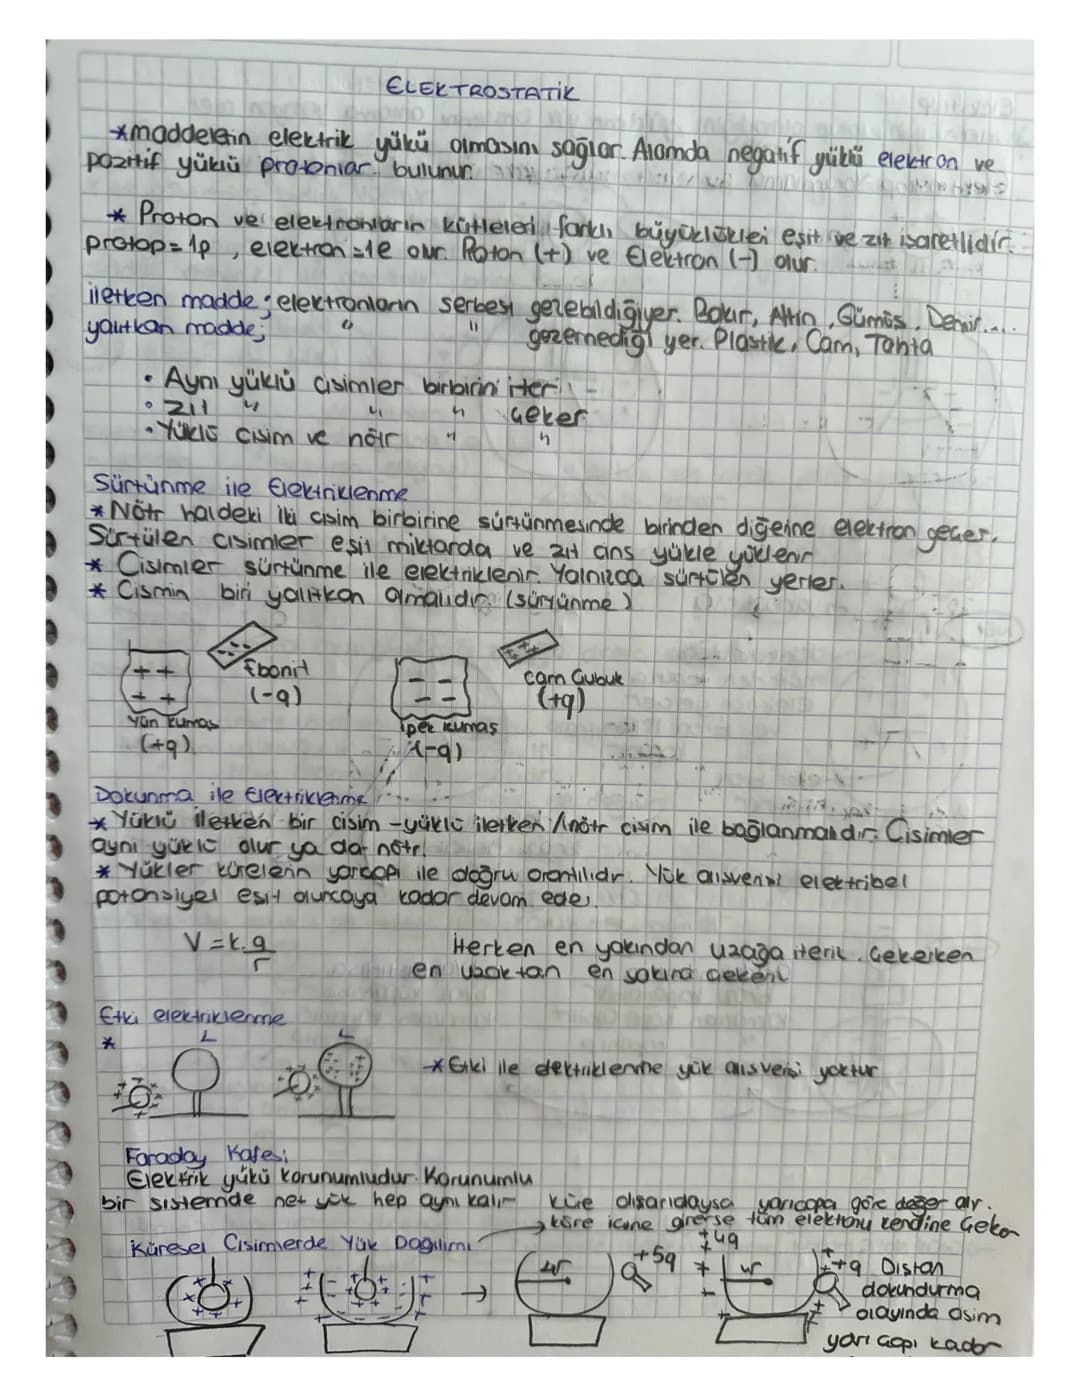 ELEKTROSTATİK
*maddelerin elektrik yükü olmasını sağlar. Atomda negatif yüklü elektron ve
pozitif yüklü protonlar bulunur.
* Proton ve elektronların kütleleri farklı büyüklükleri eşit ve zıt işaretlidir.
proton=1p , elektron=1e olur. Proton (+) ve Elektron (-) olur.
iletken madde; elektronların serbest gezebildiği yer. Bakır, Altın, Gümüş, Demir....
yalıtkan madde; " " gezemediği yer. Plastik, Cam, Tahta
• Aynı yüklü cisimler birbirini iter
• Zıt " " " çeker
• Yüklü cisim ve nötr " "
Sürtünme ile Elektriklenme
* Nötr haldeki iki cisim birbirine sürtünmesinde birinden diğerine elektron geçer.
Sürtülen cisimler eşit miktarda ve zıt cins yükle yüklenir
* Cisimler sürtünme ile elektriklenir. Yalnızca sürtülen yerler.
* Cismin biri yalıtkan olmalıdır. (sürtünme)
++ ++
Ebonit
(-q)
Yün kumaş
(+q)
-- --
Cam Çubuk
(+q)
İpek kumaş
(-q)
Dokunma ile Elektriklenme
* Yüklü iletken bir cisim -yüklü iletken/nötr cisim ile bağlanmalıdır. Cisimler
aynı yüklü olur ya da nötr.
* Yükler kürelerin yarıçapı ile doğru orantılıdır. Yük alışverişi elektriksel
potansiyel eşit oluncaya kadar devam eder.
V=k.q/r
İterken en yakından uzağa iterik. Çekerken
en uzaktan en yakına çekerik
Etki elektriklenme
*
L
L
*Etki ile elektriklenme yük alışverişi yoktur
Faraday Kafesi
Elektrik yükü korunumludur. Korunumlu
bir sistemde net yük hep aynı kalır
Küre dışarıdaysa yarıçapa göre değer alır.
küre içine girerse tüm elektronu kendine çeker
Küresel Cisimlerde Yük Dağılımı
+5q
+4q
+q Dıştan
dokundurma
olayında cisim
yarı çapı kadar